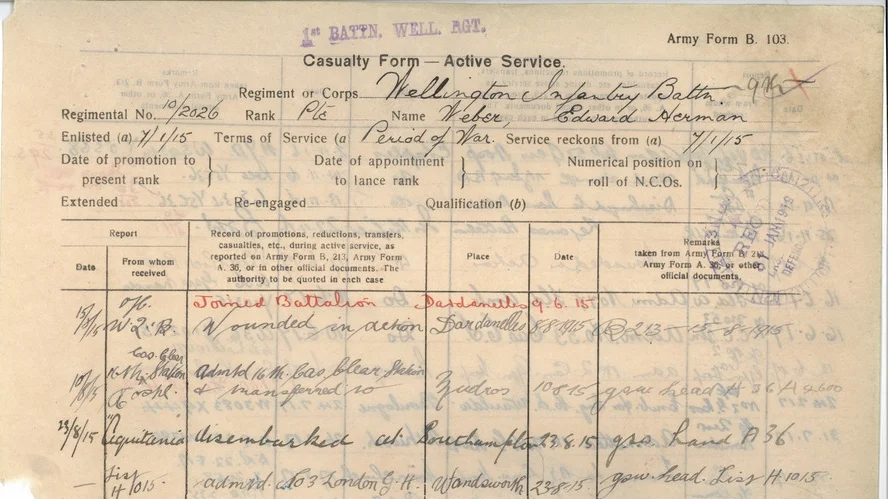 1st BATTN. WELL. RGT.
Army Form B. 103.
Casualty Form — Active Service.
Regiment or Corps Wellington Infantry Battn
Regimental No. 10/2026 Rank Pte Name Weber, Edward Herman
Enlisted (a) 7/1/15 Terms of Service (a) Period of War. Service reckons from (a) 7/1/15
Date of promotion to present rank } Date of appointment to lance rank } Numerical position on roll of N.C.Os. }
Extended Re-engaged Qualification (b)
Report
Date
From whom received
Record of promotions, reductions, transfers, casualties, etc., during active service, as reported on Army Form B. 213, Army Form A. 36, or in other official documents. The authority to be quoted in each case
Place
Date
Remarks
taken from Army Form B. 213, Army Form A. 36, or other official documents.
Joined Battalion Dardanelles 9.6.15
Wounded in action Dardanelles 8.8.1915 B 213 — 15-8-1915
Cas. Clear.
16th Station admtd 16th Cas. Clear. Station
10/8/15 Hospl. & transferred to 10.8.15 gsw head A 36 H 2600
23/8/15 Aquitania disembarked at Southampton 23.8.15 gsw hand A 36
— List H 1015. admtd. No 3 London G.H. Wandsworth 23.8.15 gsw head. List H 1015